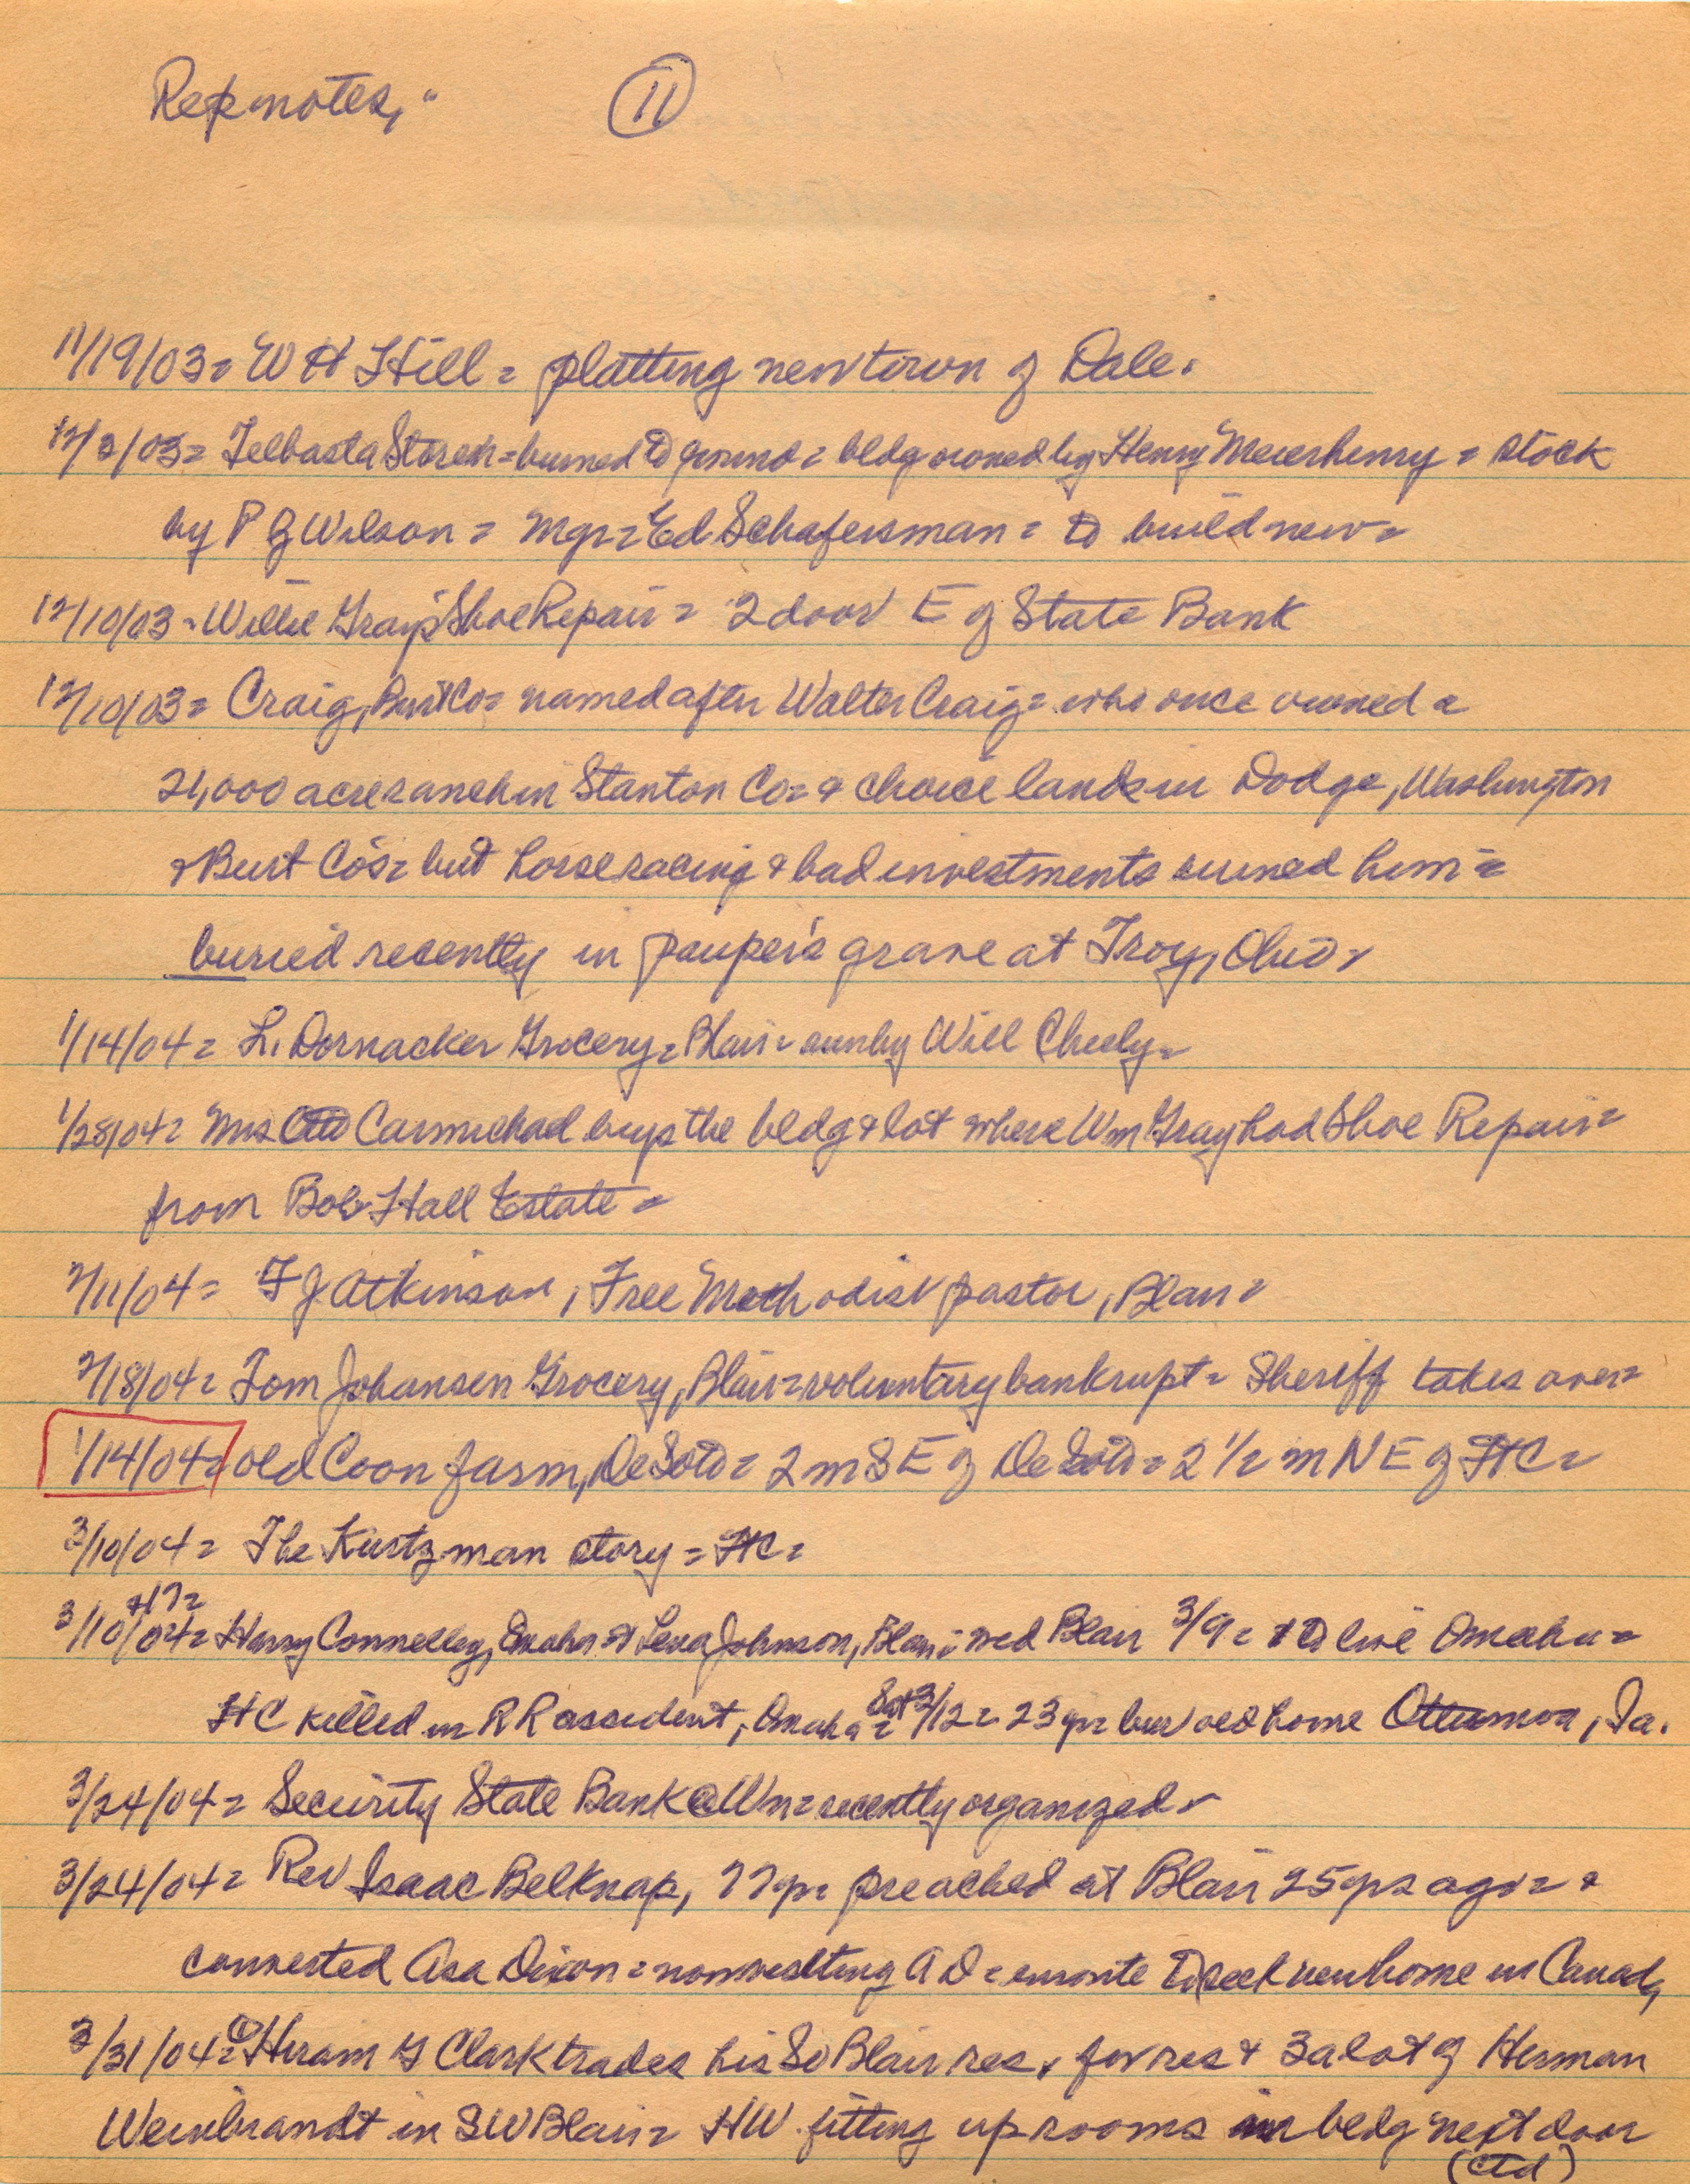 Rep notes, " 11
11/19/03 = W H Hill = platting new town of Dale.
12/3/03 = Telbasta Store = burned to ground = bldg owned by Henry Meierhenry = stock
by P G Wilson = Mgr = Ed Schafersman = to build new =
12/10/03 - Willie Gray's Shoe Repair = 2 door E of State Bank
12/10/03 = Craig, Burt Co = named after Walter Craig = who once owned a
21,000 acre ranch in Stanton Co = & choice lands in Dodge, Washington
& Burt Co's = but horse racing & bad investments ruined him =
buried recently in pauper's grave at Troy, Ohio =
1/14/04 = L. Dornacker Grocery = Blair = run by Will Cheely =
1/28/04 = Mrs Otto Carmichael buys the bldg & lot where Wm Gray had Shoe Repair =
from Bob Hall Estate =
2/11/04 = F J Atkinson, Free Methodist pastor, Blair =
2/18/04 = Tom Johansen Grocery, Blair = voluntary bankrupt = Sheriff takes over =
1/14/04 = old Coon farm, DeSoto = 2 m S E of DeSoto = 2 1/2 m N E of FtC =
3/10/04 = The Kurtzman story = FtC =
& 17 =
3/10/04 = Harry Connelley, Omaha & Lena Johnson, Blair = wed Blair 3/9 = & to live Omaha =
HC killed in RR accident, Omaha = Sat 3/12 = 23 yr = bur old home Ottumwa, Ia.
3/24/04 = Security State Bank @ Wn = recently organized =
3/24/04 = Rev Isaac Belknap, 77 yr = preached at Blair 25 yrs ago = &
converted Asa Dixon = now visiting A D = enroute to seek new home in Canada,
3/31/04 = Hiram G Clark trades his So Blair res. for res & 3a lot of Herman
Weinbrandt in SW Blair = HW fitting up rooms in bldg next door
(ctd)